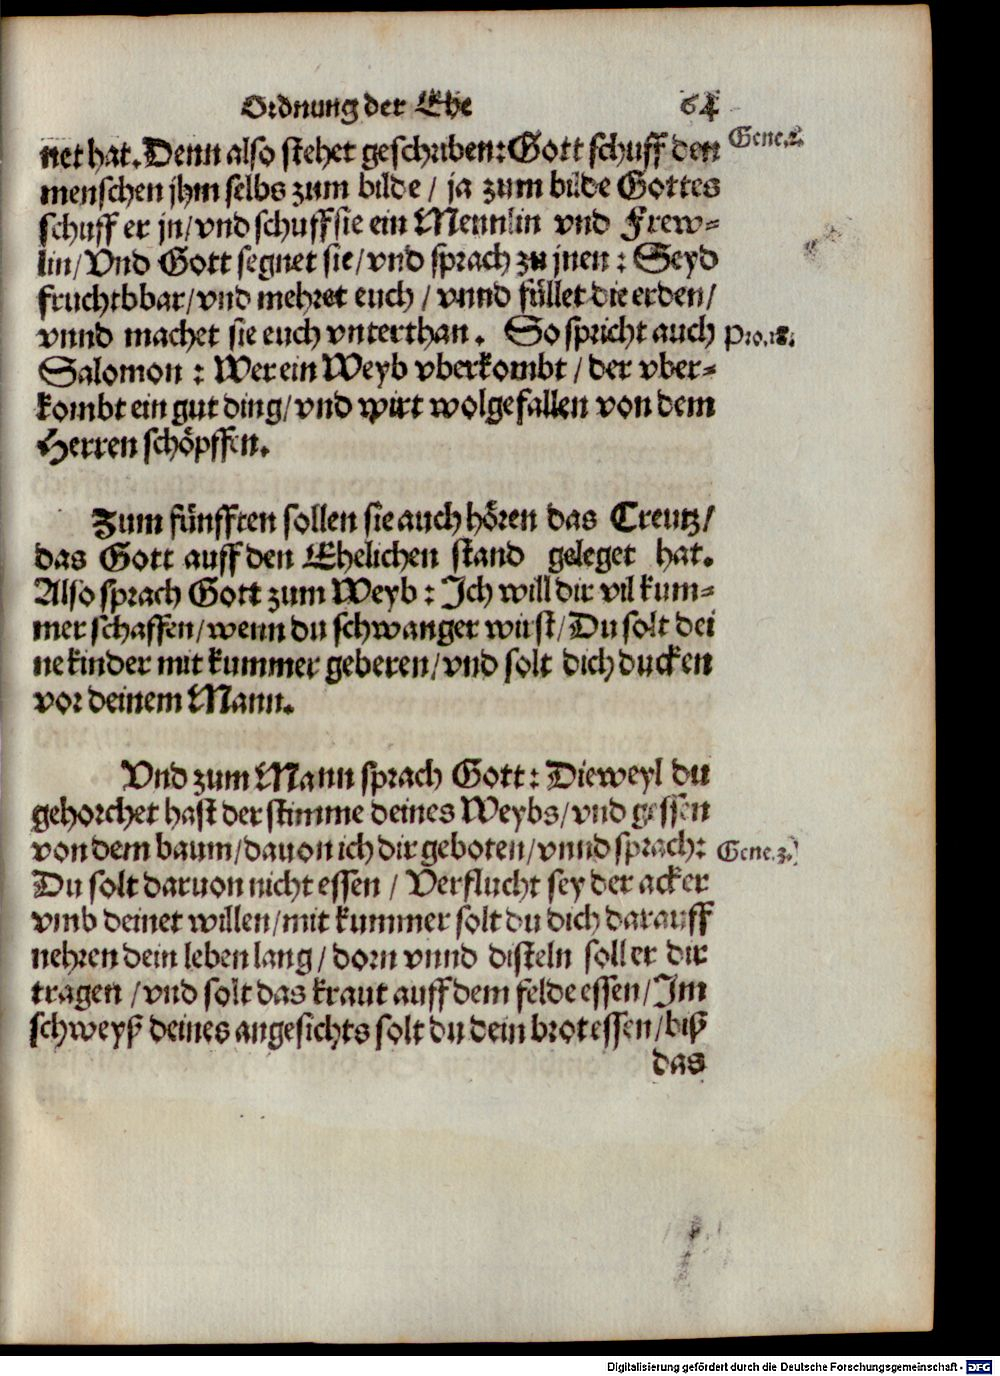 Ordnung der Ehe 64
net hat. Denn also stehet geschriben: Gott schuff den Gene.1.
menschen jhm selbs zum bilde / ja zum bilde Gottes
schuff er jn/ vnd schuff sie ein Mennlin vnd Frew-
lin/ Vnd Gott segnet sie/ vnd sprach zu jnen : Seyd
fruchtbbar/ vnd mehret euch / vnnd füllet die erden/
vnnd machet sie euch vnterthan. So spricht auch Pro.18.
Salomon : Wer ein Weyb vberkombt / der vber-
kombt ein gut ding/ vnd wirt wolgefallen von dem
Herren schöpffen.
Zum fünfften sollen sie auch hören das Creutz/
das Gott auff den Ehelichen stand geleget hat.
Also sprach Gott zum Weyb : Ich will dir vil kum-
mer schaffen/ wenn du schwanger wirst/ Du solt dei
ne kinder mit kummer geberen/ vnd solt dich ducken
vor deinem Mann.
Vnd zum Mann sprach Gott: Dieweyl du
gehorchet hast der stimme deines Weybs/ vnd gessen
von dem baum/ dauon ich dir geboten/ vnnd sprach: Gene.3.
Du solt daruon nicht essen / Verflucht sey der acker
vmb deinet willen/ mit kummer solt du dich darauff
nehren dein leben lang/ dorn vnnd disteln soll er dir
tragen / vnd solt das kraut auff dem felde essen/ Im
schweyß deines angesichts solt du dein brot essen/ biß
das
Digitalisierung gefördert durch die Deutsche Forschungsgemeinschaft - DFG